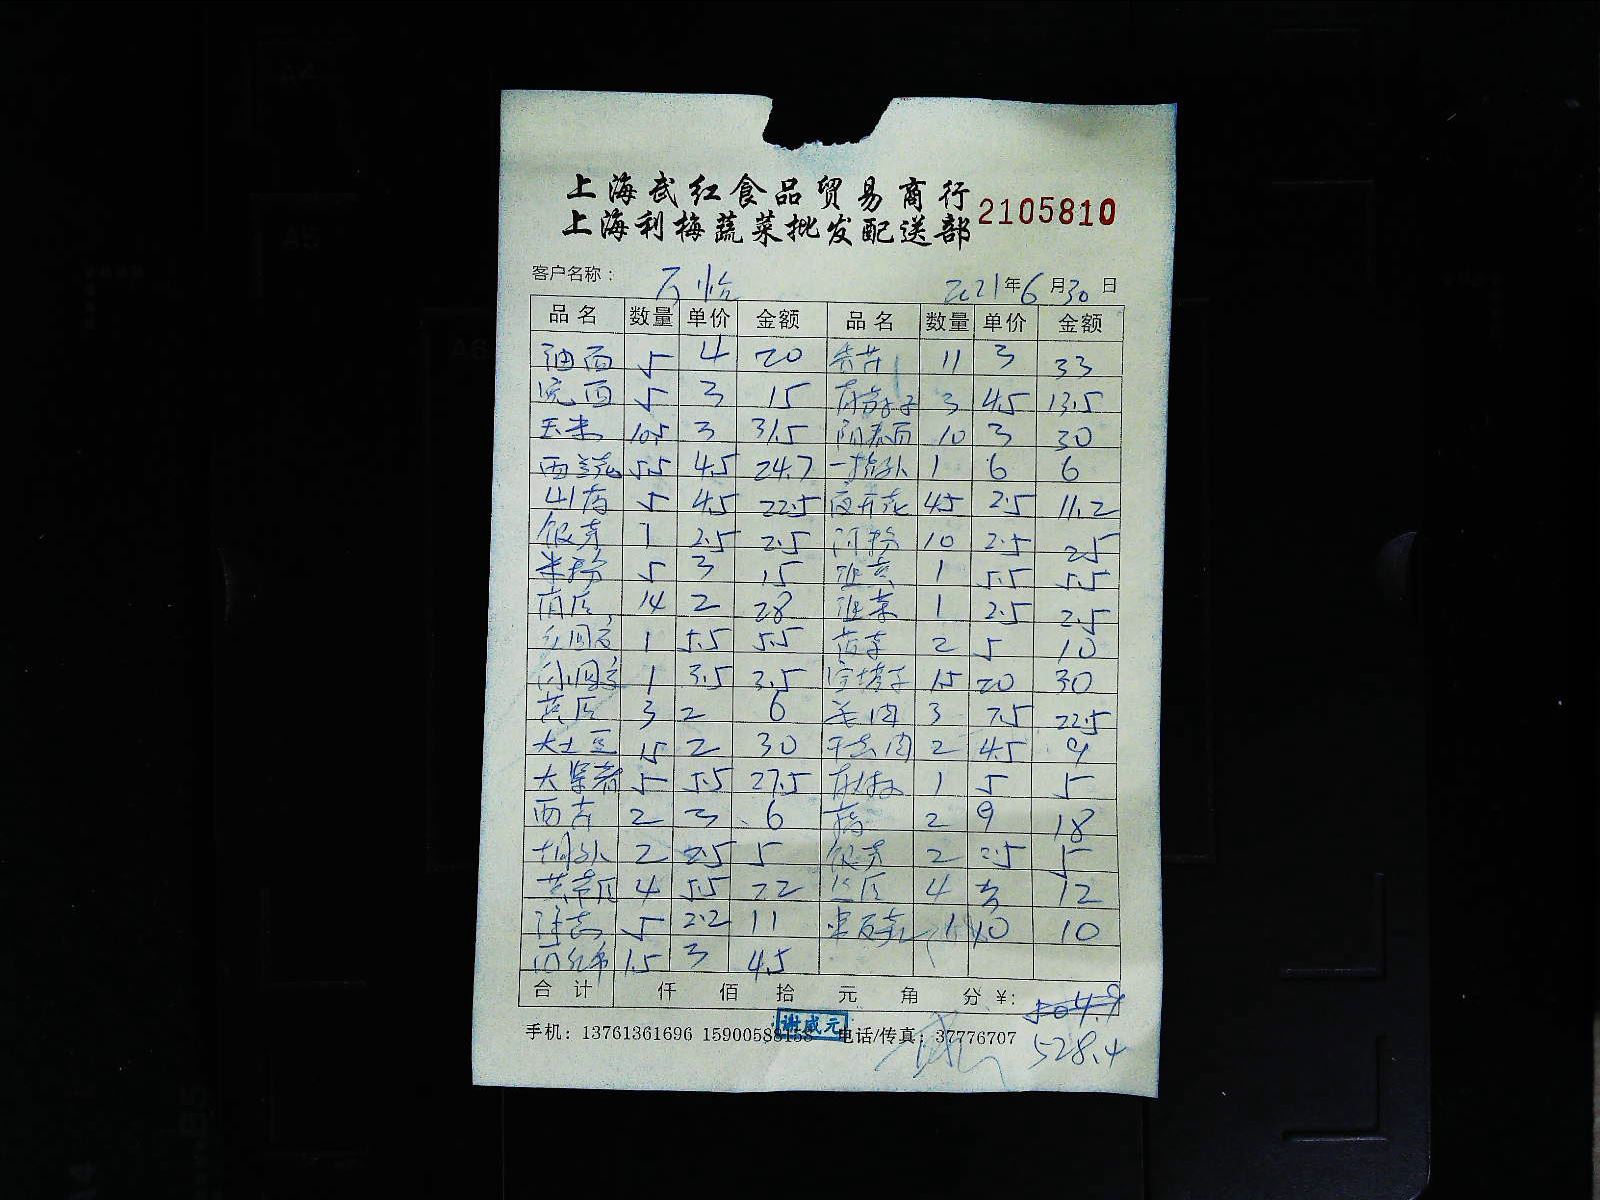 上海武红食品贸易商行
上海利梅蔬菜批发配送部 2105810
客户名称： 2021年6月30日
品名 数量 单价 金额 品名 数量 单价 金额
油面 5 4 20 11 3 33
5 3 15 3 4.5 13.5
玉米 10.5 3 31.5 阳春面 10 3 30
西兰花 5.5 4.5 24.7 1 6 6
山药 5 4.5 22.5 夜开花 4.5 2.5 11.2
1 2.5 2.5 河粉 10 2.5 25
米粉 5 3 15 韭黄 1 5.5 5.5
南瓜 14 2 28 韭菜 1 2.5 2.5
红圆椒 1 5.5 5.5 2 5 10
1 3.5 3.5 1.5 20 30
黄瓜 3 2 6 3 7.5 22.5
大土豆 15 2 30 2 4.5 9
大紫薯 5 5.5 27.5 1 5 5
西芹 2 3 6 2 9 18
2 2.5 5 2 2.5 5
4 5.5 22 4 3 12
洋葱 5 2.2 11 10 10
西红柿 1.5 3 4.5
合计 仟 佰 拾 元 角 分 ¥: 504.9
手机：13761361696 15900588158 谢威元 电话/传真：37776707 528.4